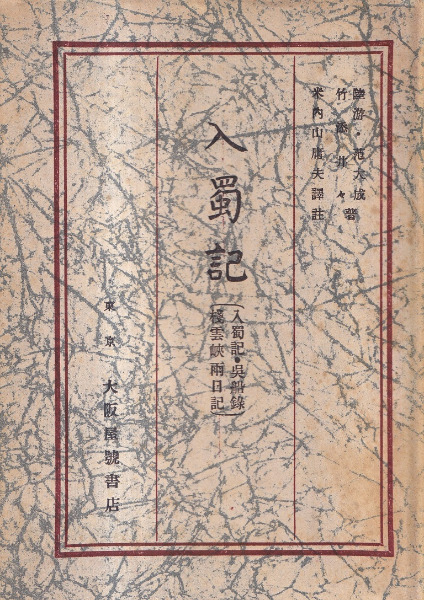 陸游・范大成
竹添井々著
米内山庸夫譯註
入蜀記
(入蜀記・吳船錄
棧雲峽雨日記)
東京 大阪屋號書店